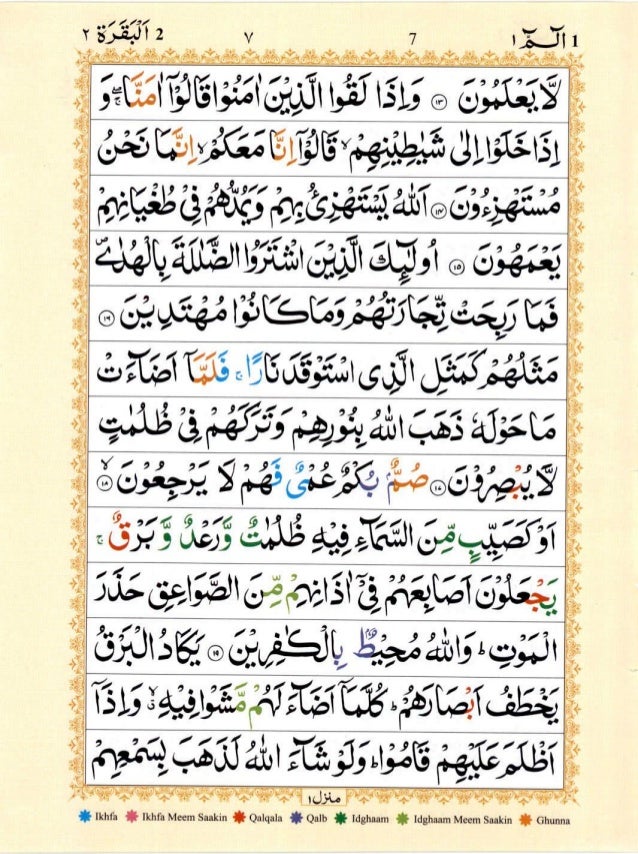 البقرة ٢ 2 ٧ 7 الٓمّٓ ١ 1
لَّا يَعْلَمُوْنَ ﴿١٣﴾ وَاِذَا لَقُوا الَّذِيْنَ اٰمَنُوْا قَالُوْٓا اٰمَنَّا ۖۚ وَ
اِذَا خَلَوْا اِلٰى شَيٰطِيْنِهِمْ ۙ قَالُوْٓا اِنَّا مَعَكُمْ ۙ اِنَّمَا نَحْنُ
مُسْتَهْزِءُوْنَ ﴿١٤﴾ اَللّٰهُ يَسْتَهْزِئُ بِهِمْ وَيَمُدُّهُمْ فِيْ طُغْيَانِهِمْ
يَعْمَهُوْنَ ﴿١٥﴾ اُولٰٓئِكَ الَّذِيْنَ اشْتَرَوُا الضَّلٰلَةَ بِالْهُدٰى ۪
فَمَا رَبِحَتْ تِّجَارَتُهُمْ وَمَا كَانُوْا مُهْتَدِيْنَ ﴿١٦﴾
مَثَلُهُمْ كَمَثَلِ الَّذِى اسْتَوْقَدَ نَارًا ۚ فَلَمَّآ اَضَآءَتْ
مَا حَوْلَهٗ ذَهَبَ اللّٰهُ بِنُوْرِهِمْ وَتَرَكَهُمْ فِيْ ظُلُمٰتٍ
لَّا يُبْصِرُوْنَ ﴿١٧﴾ صُمٌّۢ بُكْمٌ عُمْيٌ فَهُمْ لَا يَرْجِعُوْنَ ﴿١٨﴾ ۙ
اَوْ كَصَيِّبٍ مِّنَ السَّمَآءِ فِيْهِ ظُلُمٰتٌ وَّرَعْدٌ وَّبَرْقٌ ۚ
يَجْعَلُوْنَ اَصَابِعَهُمْ فِيْٓ اٰذَانِهِمْ مِّنَ الصَّوَاعِقِ حَذَرَ
الْمَوْتِ ؕ وَاللّٰهُ مُحِيْطٌۢ بِالْكٰفِرِيْنَ ﴿١٩﴾ يَكَادُ الْبَرْقُ
يَخْطَفُ اَبْصَارَهُمْ ؕ كُلَّمَآ اَضَآءَ لَهُمْ مَّشَوْا فِيْهِ ۙ وَاِذَآ
اَظْلَمَ عَلَيْهِمْ قَامُوْا ؕ وَلَوْ شَآءَ اللّٰهُ لَذَهَبَ بِسَمْعِهِمْ
منزل ١
Ikhfa Ikhfa Meem Saakin Qalqala Qalb Idghaam Idghaam Meem Saakin Ghunna